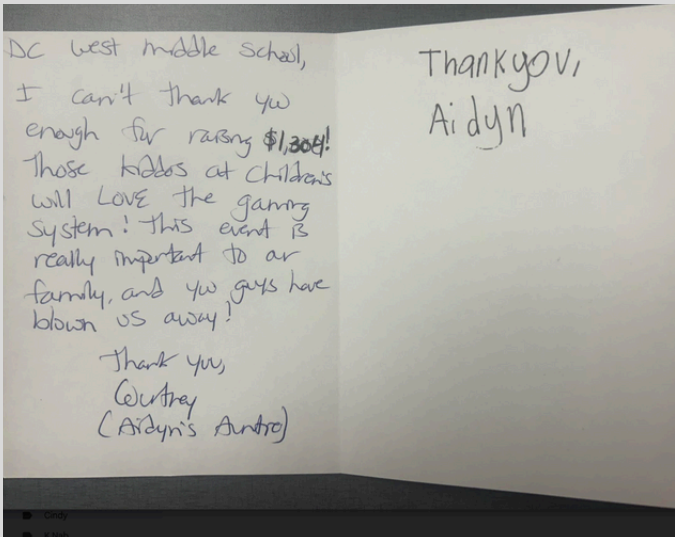 DC West Middle School,
I can't thank you
enough for raising $1,304!
Those kiddos at Children's
will LOVE the gaming
system! This event is
really important to our
family, and you guys have
blown us away!
Thank you,
Courtney
(Aidyn's Auntie)
Thank you,
Aidyn
Cindy